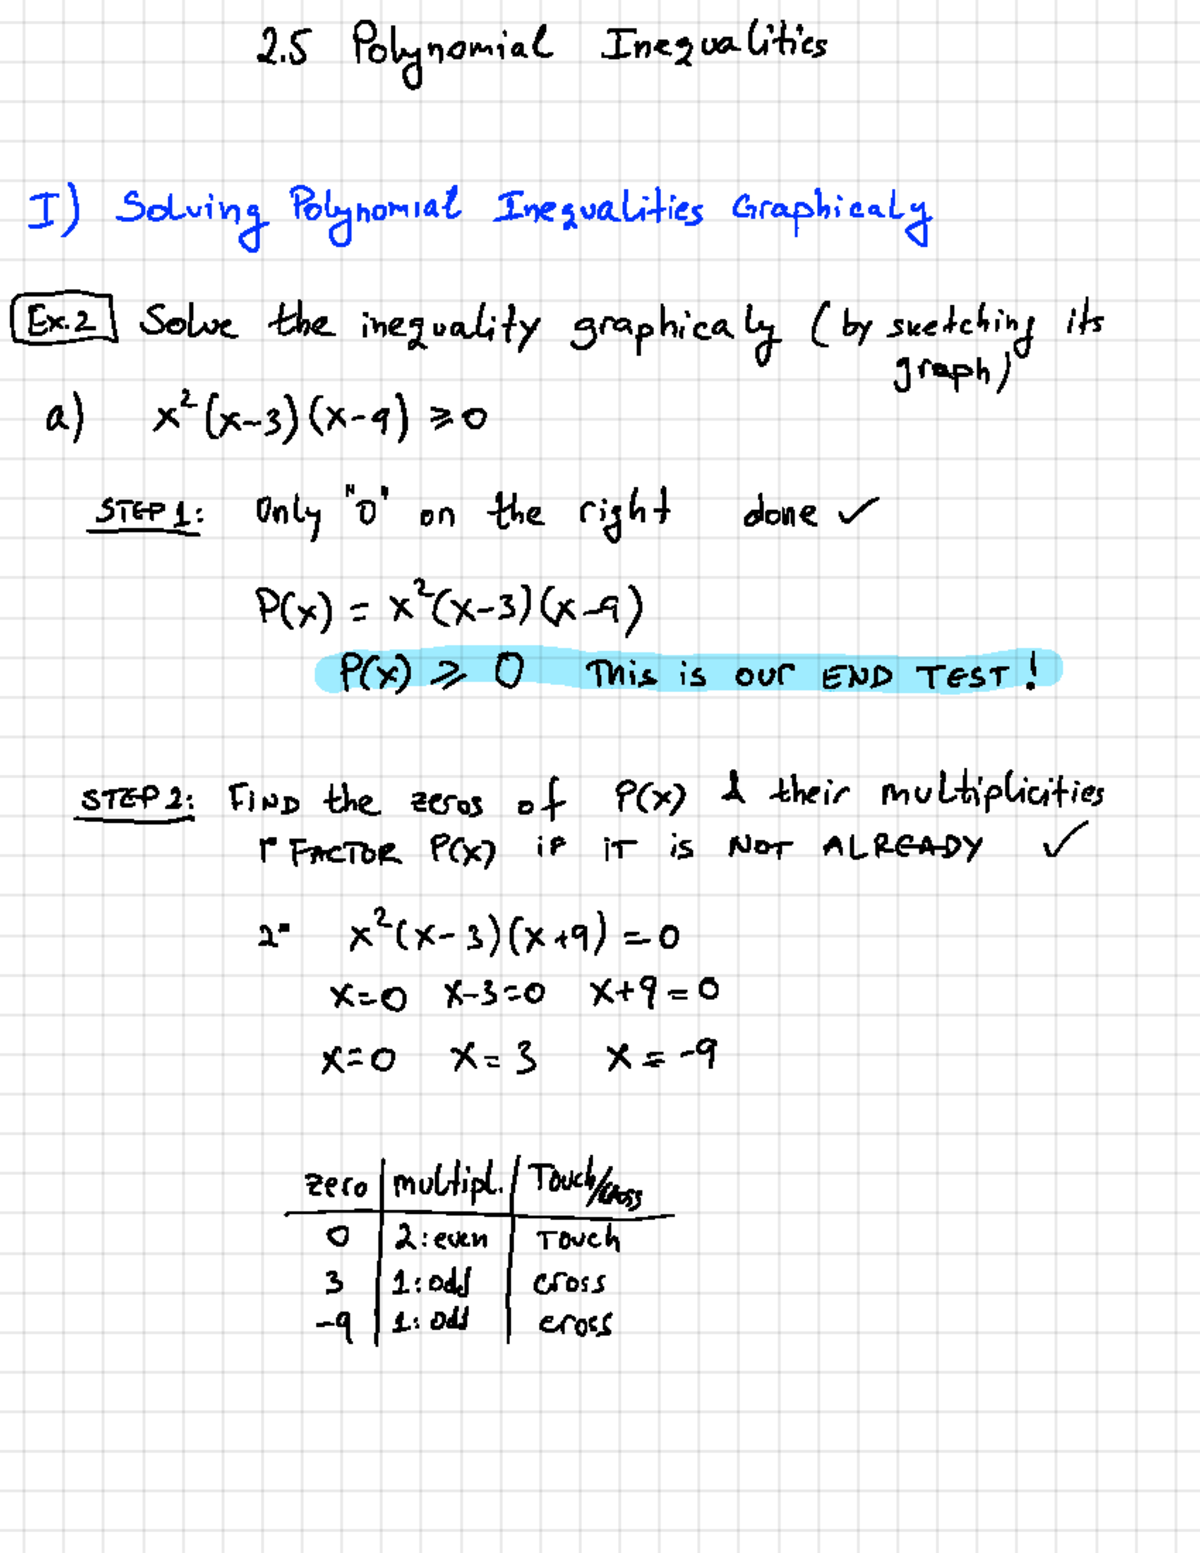 2.5 Polynomial Inequalities
I) Solving Polynomial Inequalities Graphicaly
Ex.2 Solve the inequality graphicaly (by sketching its graph)
a) x²(x-3)(x-9) ≥ 0
STEP 1: Only "0" on the right done ✓
P(x) = x²(x-3)(x-9)
P(x) ≥ 0 This is our END TEST!
STEP 2: FIND the zeros of P(x) & their multiplicities
1° FACTOR P(x) if iT is NOT ALREADY ✓
2° x²(x-3)(x+9) = 0
x=0 x-3=0 x+9=0
x=0 x=3 x=-9
zero multipl. Touch/cross
0 2:even Touch
3 1:odd cross
-9 1:odd cross